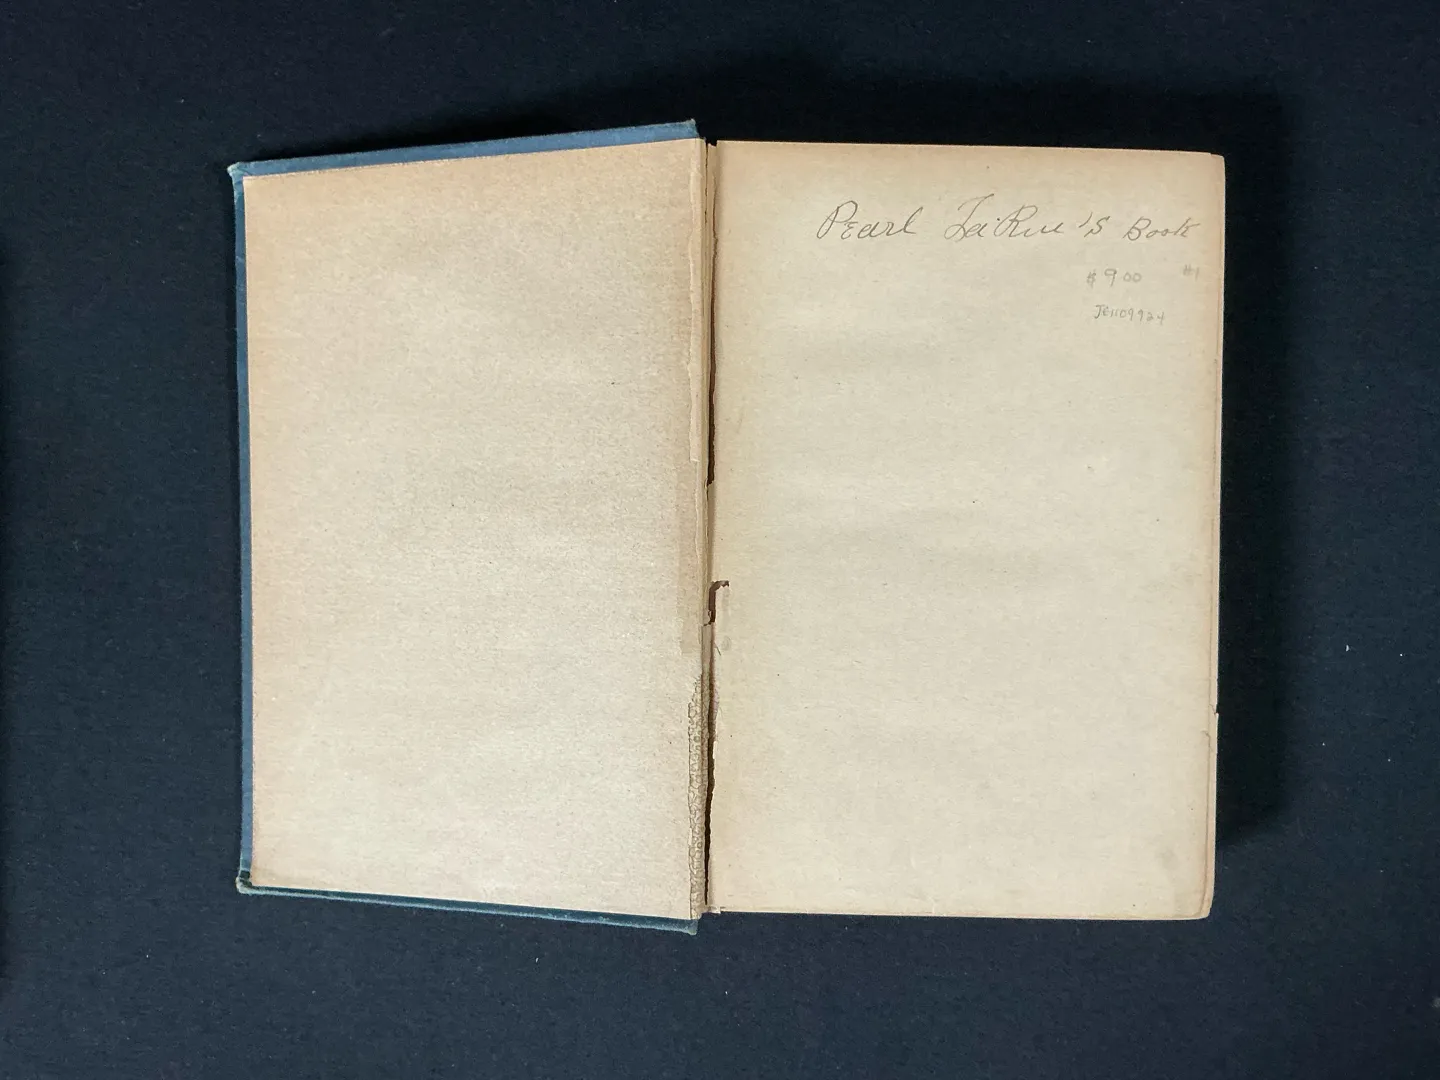 Pearl LaRue's Book
$9.00 #1
JE1109924